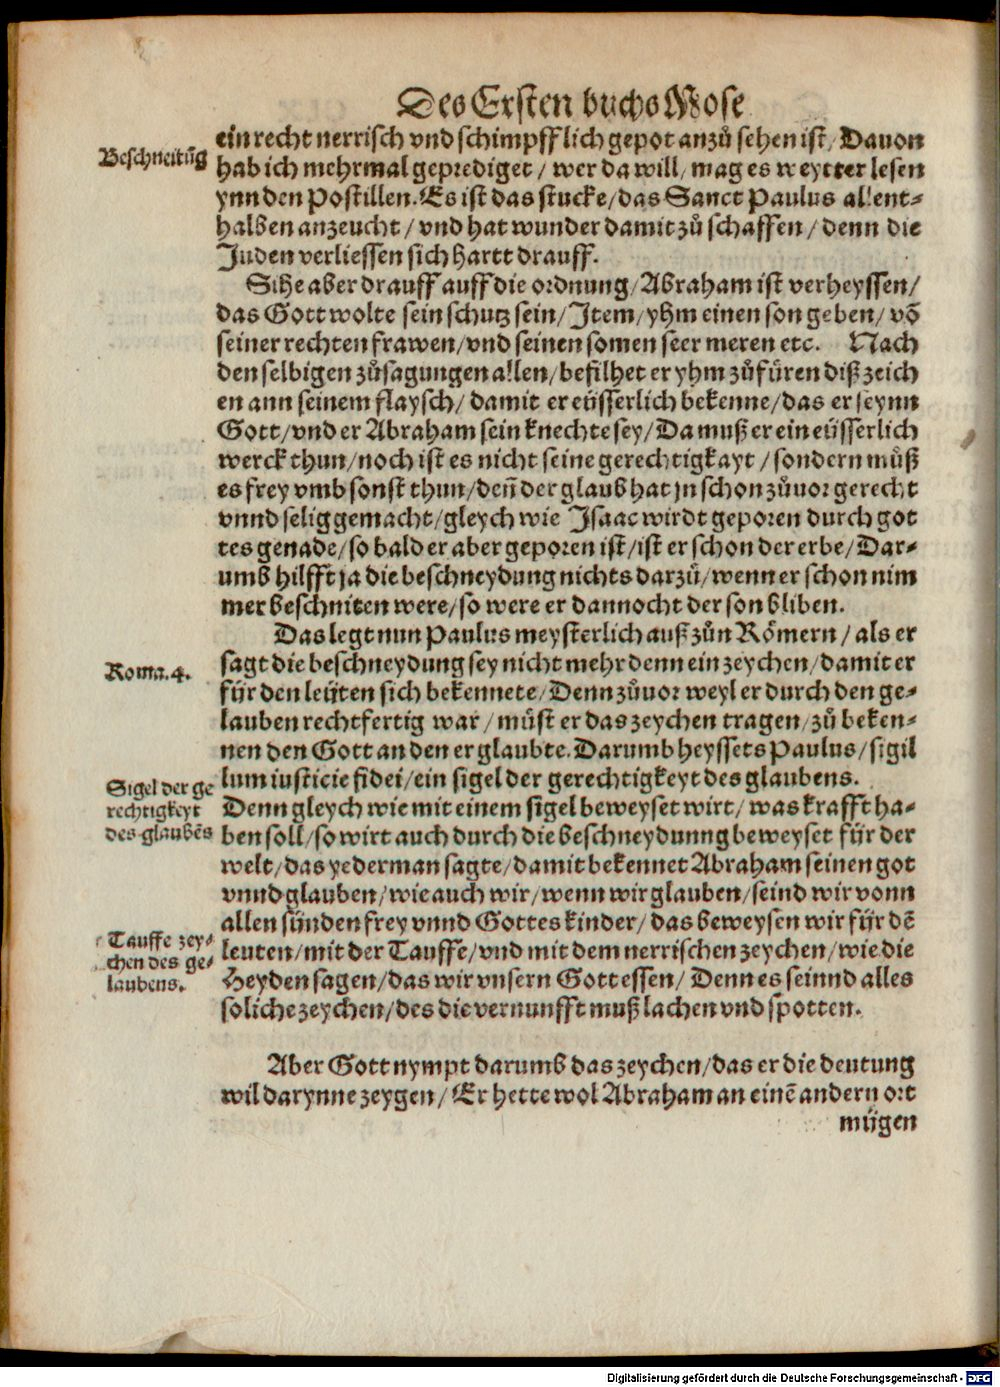 Des Ersten buchs Mose
ein recht nerrisch vnd schimpfflich gepot anzů sehen ist/ Dauon
Beschneitũg
hab ich mehrmal geprediget / wer da will/ mag es weytter lesen
ynn den Postillen. Es ist das stucke/ das Sanct Paulus allent-
halben anzeucht / vnd hat wunder damit zů schaffen / denn die
Juden verliessen sich hartt drauff.
Sihe aber drauff auff die ordnung/ Abraham ist verheyssen/
das Gott wolte sein schutz sein/ Item/ yhm einen son geben/ võ
seiner rechten frawen/ vnd seinen somen seer meren etc. Nach
den selbigen zůsagungen allen/ befilhet er yhm zů füren diß zeich
en ann seinem flaysch/ damit er eüsserlich bekenne/ das er seynn
Gott/ vnd er Abraham sein knechte sey/ Da muß er ein eüsserlich
werck thun/ noch ist es nicht seine gerechtigkayt / sondern můß
es frey vmb sonst thun/ deñ der glaub hat jn schon zůuor gerecht
vnnd selig gemacht/ gleych wie Isaac wirdt geporen durch got
tes genade/ so bald er aber geporen ist/ ist er schon der erbe/ Dar-
umb hilfft ja die beschneydung nichts darzů/ wenn er schon nim
mer beschniten were/ so were er dannocht der son bliben.
Das legt nun Paulus meysterlich auß zůn Rőmern / als er
Roma. 4.
sagt die beschneydung sey nicht mehr denn ein zeychen/ damit er
für den leüten sich bekennete/ Denn zůuor weyl er durch den ge-
lauben rechtfertig war / můst er das zeychen tragen/ zů beken-
nen den Gott an den er glaubte. Darumb heyssets Paulus/ sigil
lum iusticie fidei/ ein sigel der gerechtigkeyt des glaubens.
Sigel der ge
rechtigkeyt
des glaubẽs
Denn gleych wie mit einem sigel beweyset wirt/ was krafft ha-
ben soll/ so wirt auch durch die beschneydunng beweyset für der
welt/ das yederman sagte/ damit bekennet Abraham seinen got
vnnd glauben/ wie auch wir/ wenn wir glauben/ seind wir vonn
allen sünden frey vnnd Gottes kinder/ das beweysen wir für dẽ
Tauffe zey-
chen des ge-
laubens.
leuten/ mit der Tauffe/ vnd mit dem nerrischen zeychen/ wie die
Heyden sagen/ das wir vnsern Gott essen/ Denn es seinnd alles
soliche zeychen/ des die vernunfft muß lachen vnd spotten.
Aber Gott nympt darumb das zeychen/ das er die deutung
wil darynne zeygen/ Er hette wol Abraham an einẽ andern ort
mügen
Digitalisierung gefördert durch die Deutsche Forschungsgemeinschaft - DFG